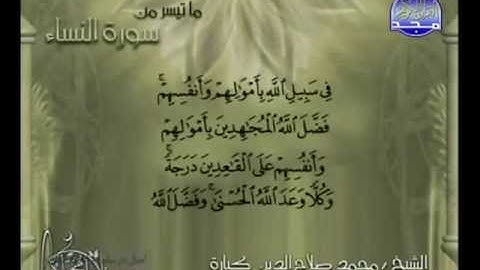 ما تيسر من
سورة النساء
مجد
فِي سَبِيلِ ٱللَّهِ بِأَمْوَٰلِهِمْ وَأَنفُسِهِمْ ۚ
فَضَّلَ ٱللَّهُ ٱلْمُجَٰهِدِينَ بِأَمْوَٰلِهِمْ
وَأَنفُسِهِمْ عَلَى ٱلْقَٰعِدِينَ دَرَجَةً ۚ
وَكُلًّا وَعَدَ ٱللَّهُ ٱلْحُسْنَىٰ ۚ وَفَضَّلَ ٱللَّهُ
الشيخ / محمد صلاح الدين كبارة